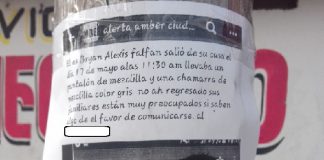 alerta amber ciud...
El es Bryan Alexis falfan salió de su casa el
día 17 de mayo alas 11:30 am llevaba un
pantalón de mezclilla y una chamarra de
mezclilla color gris no ah regresado sus
familiares están muy preocupados si saben
algo de el favor de comunicarse al